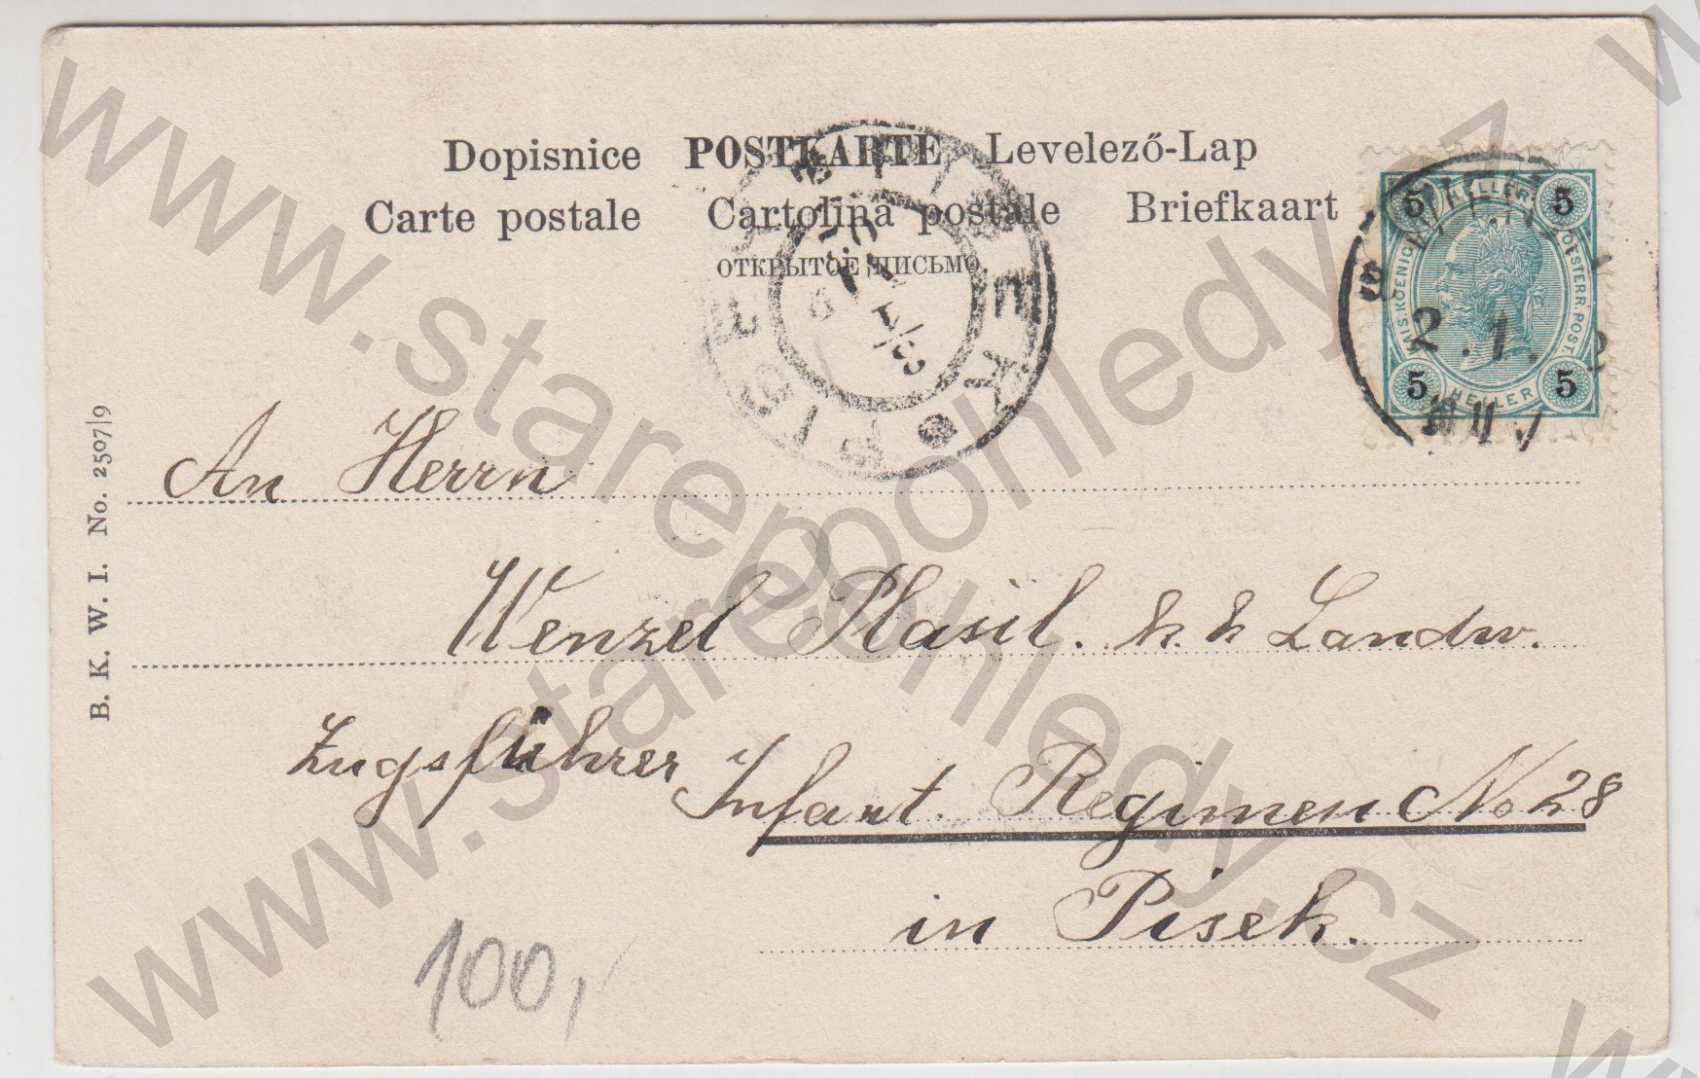 Dopisnice POSTKARTE Levelező-Lap
Carte postale Cartolina postale Briefkaart
ОТКРЫТОЕ ПИСЬМО
5 HELLER 5
KAIS. KOENIGL. OESTERR. POST.
5 HELLER 5
2.1.
PISEK
B. K. W. I. No. 2507|9
An Herrn
Wenzel Plasil. k. k Landw.
Zugsführer Infant. Regimen No 28
in Pisek.
100,
www.starepohledy.cz
www.starepohledy.cz